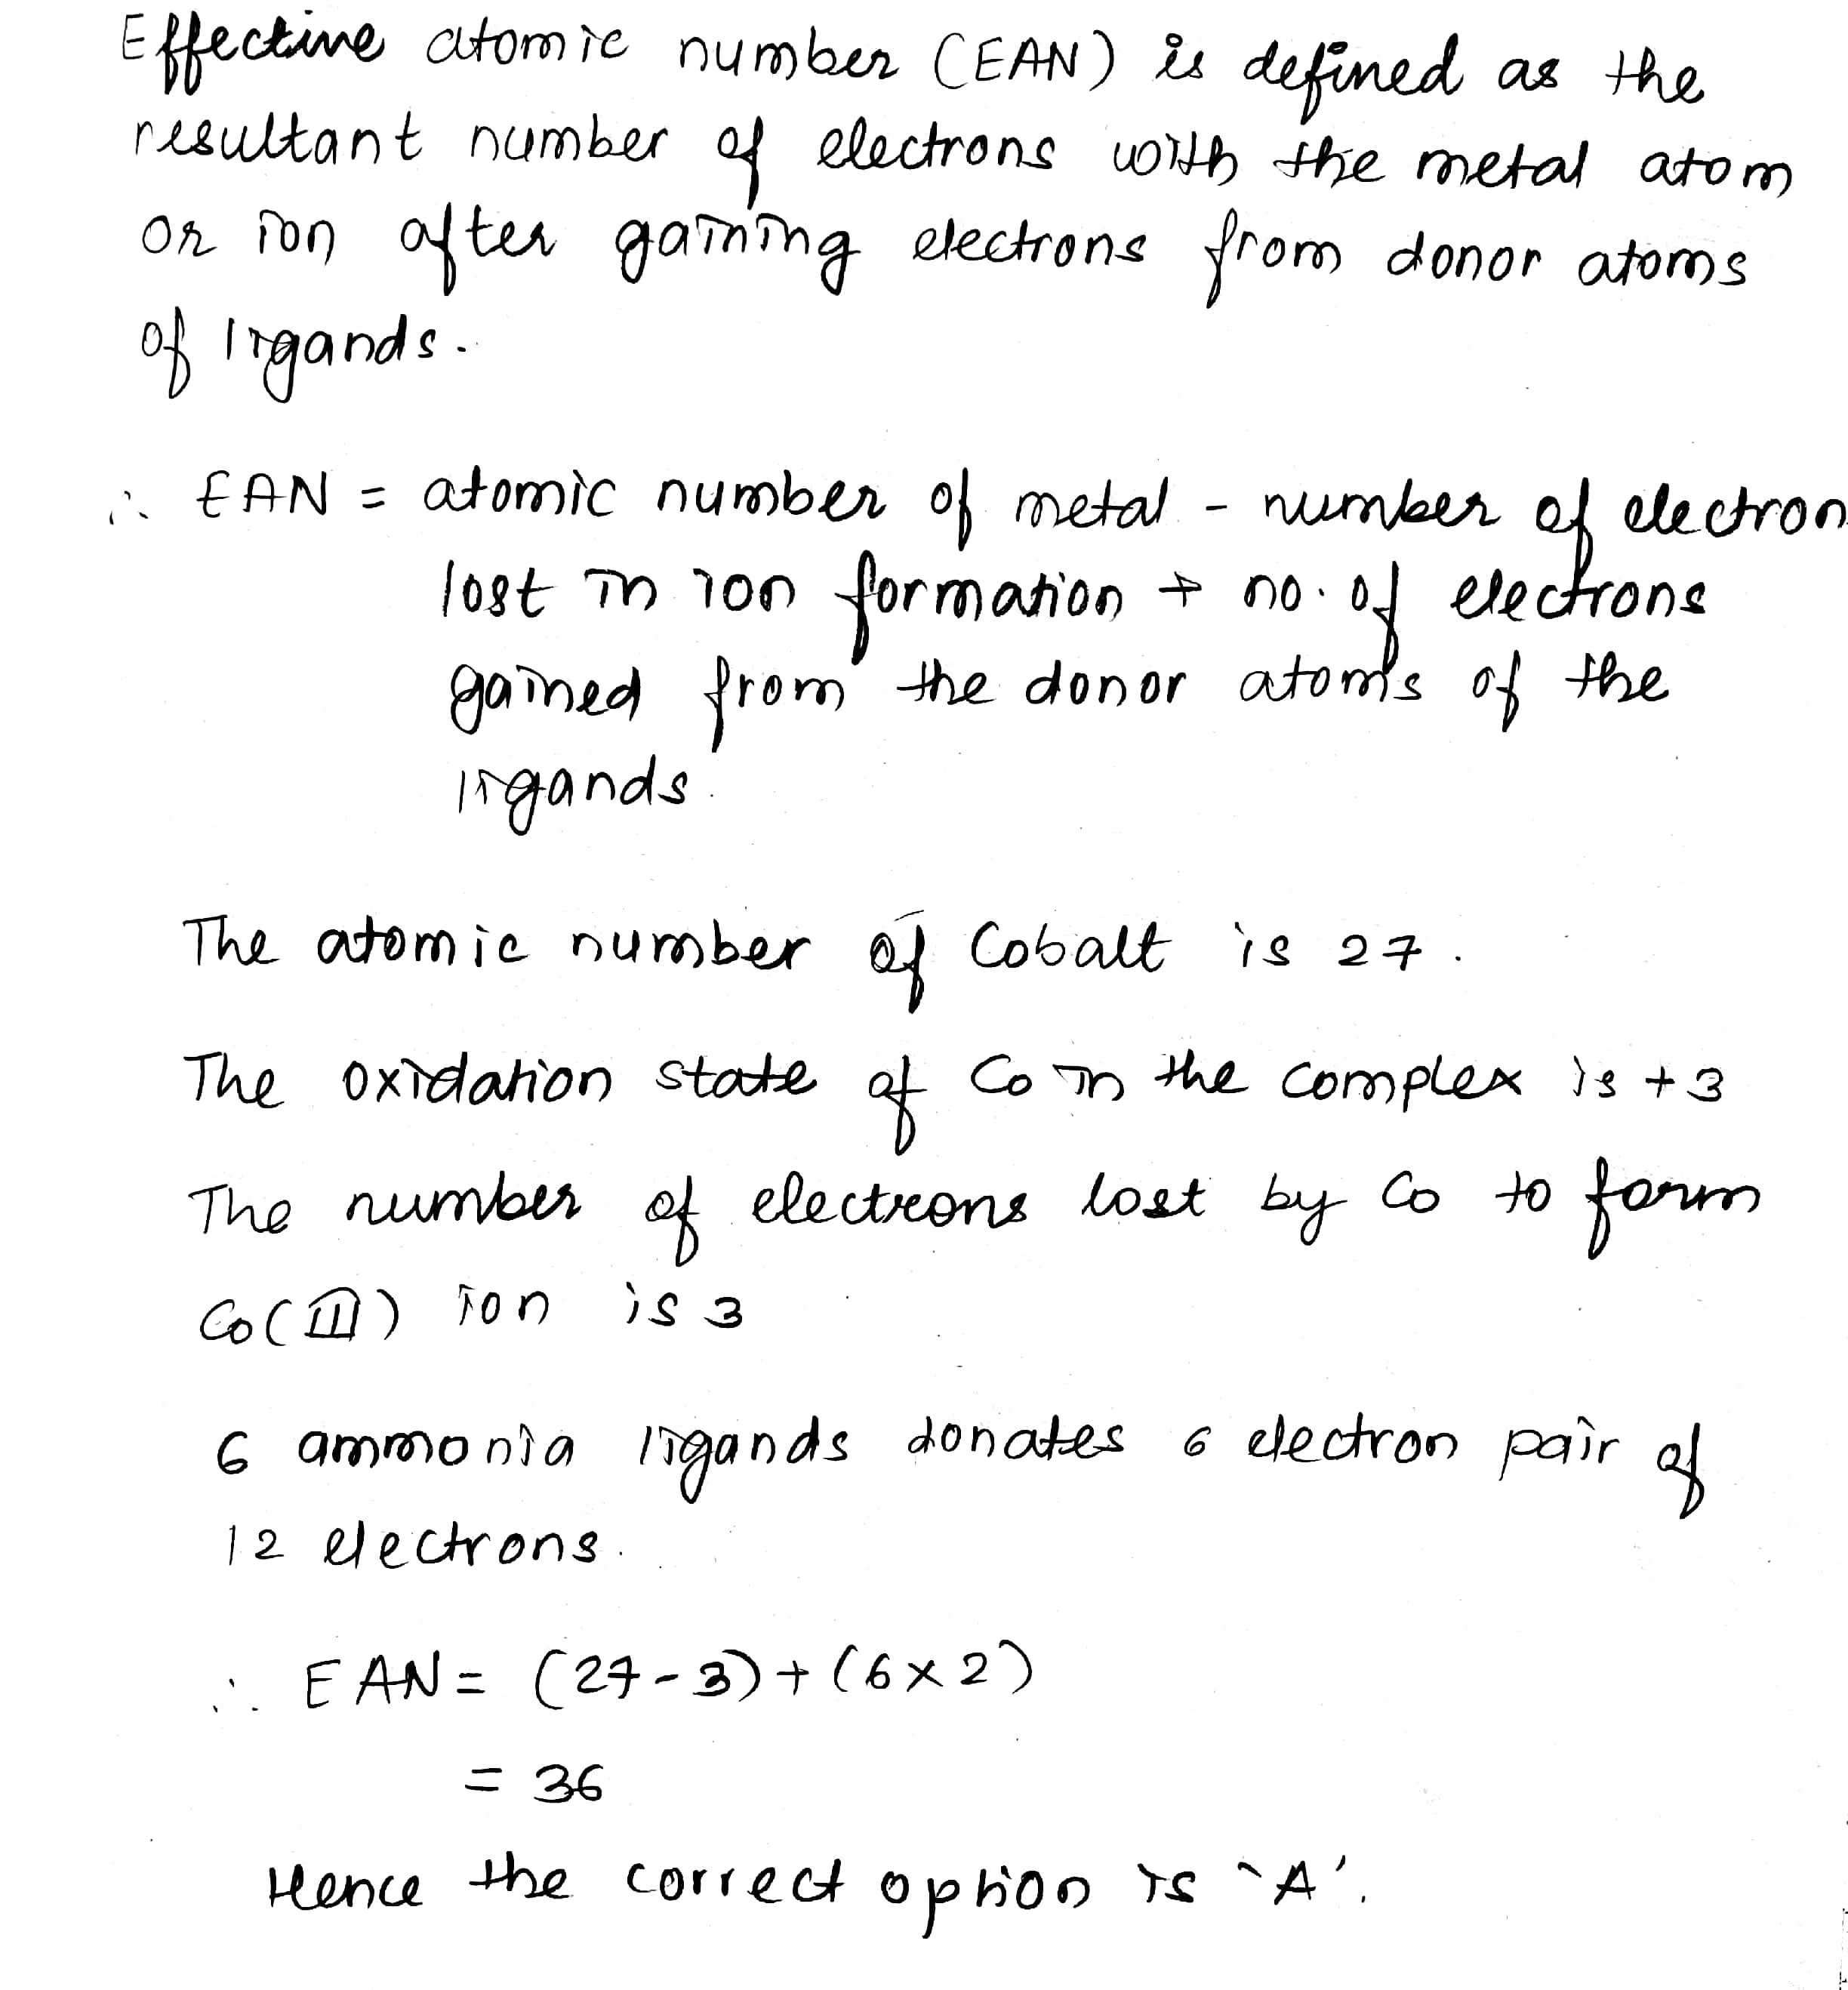 Effective atomic number (EAN) is defined as the
resultant number of electrons with the metal atom
or ion after gaining electrons from donor atoms
of ligands.
∴ EAN = atomic number of metal - number of electron
lost in ion formation + no. of electrons
gained from the donor atoms of the
ligands.
The atomic number of Cobalt is 27.
The oxidation state of Co in the complex is +3
The number of electrons lost by Co to form
Co(III) ion is 3
6 ammonia ligands donates 6 electron pair of
12 electrons.
∴ EAN = (27-3)+(6×2)
= 36
Hence the correct option is `A'.